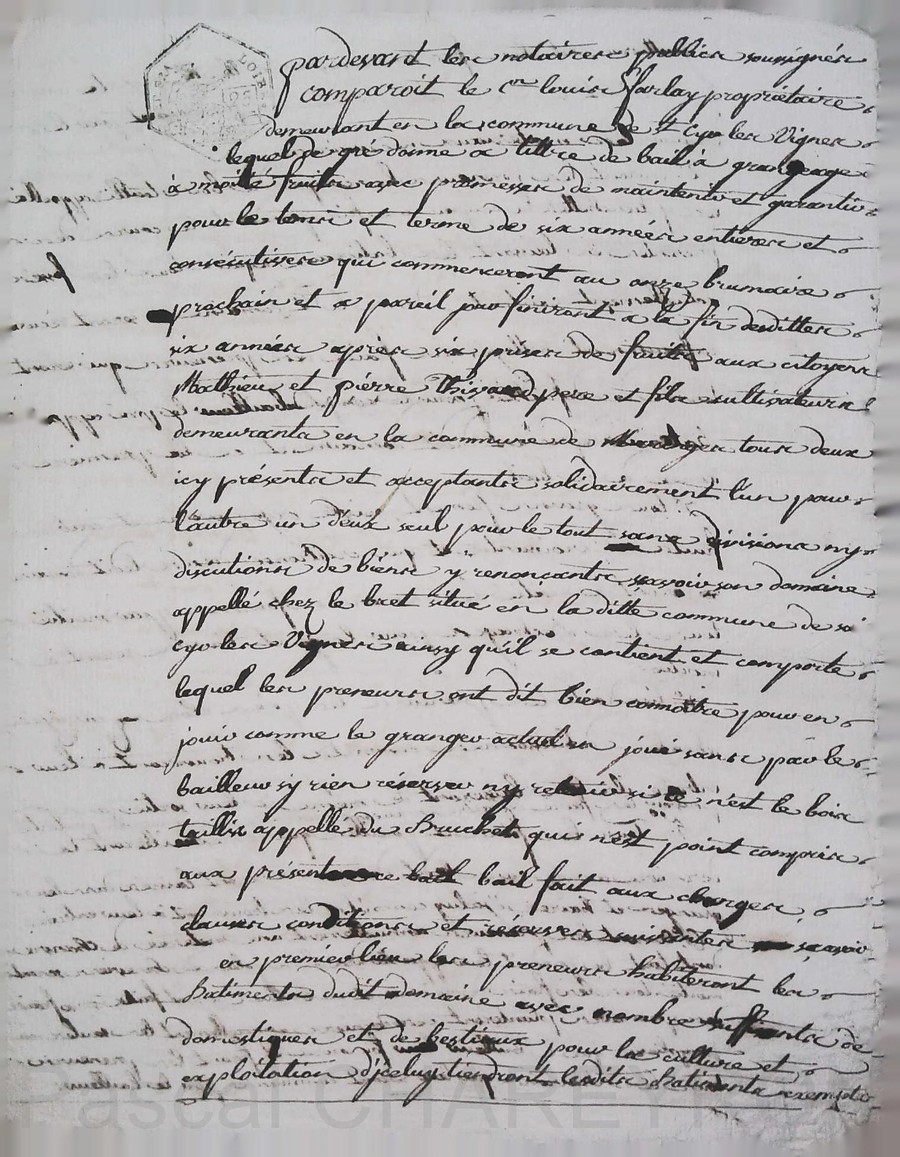 pardevant les notaires publics soussignés
comparoit le c.en louis farlay propriétaire
demeurant en la commune de st Cyr les Vignes
lequel de gré donne a tittre de bail à grangeage
à moitié fruits avec promesses de maintenir et garantir
pour le tems et terme de six années entieres et
consécutives qui commenceront au onze brumaire
prochain et a pareil jour finiront a la fin desdittes
six années après six prises de fruits aux citoyens
Mathieu et pierre pere et fils cultivateurs
demeurants en la commune de tous deux
icy présents et acceptants solidairement l'un pour
l'autre un d'eux seul pour le tout sans divisions ny
discutions de biens y renonçants sçavoir son domaine
appellé chez le bret situé en la ditte commune de st
cyr les Vignes ainsy qu'il se contient et comporte
lequel les preneurs ont dit bien connoitre pour en
jouir comme le granger actuel en joui sans par le
bailleur y rien réserver ny retenir si ce n'est le bois
taillis appellé du Bruchet qui n'est point compris
aux présent bail fait aux charges
clauses conditions et réserves suivantes sçavoir
en premier lieu les preneurs habiteront les
Batiments dudit domaine avec nombre suffisants de
domestiques et de bestiaux pour la culture et
exploitation d'jceluy tiendront lesdits Batiments exempts
Pascal CHAREYRON